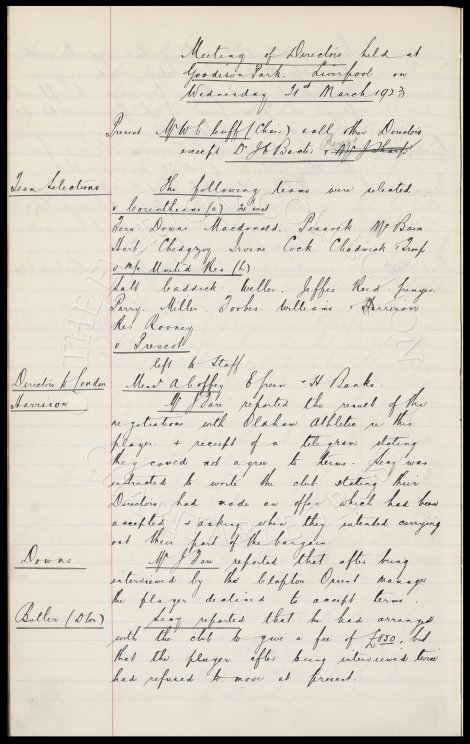 Meeting of Directors held at
Goodison Park. Liverpool on
Wednesday 21st March 1923
Present Mr W C Cuff (Chair) & all other Directors
except Dr J C Baxter & Mr J Sharp
Team Selections
The following teams were selected.
v Corinthians (a)
Fern Downs Macdonald. Peacock Mc Bain
Hart Chedgzoy Irvine Cock Chadwick & Troup
v M/c United Res (h)
Salt Caddick. Weller. Jeffes Reid
Parry. Miller Forbes Williams & Harrison
Res Rooney
v Prescot
left to Staff
Directors to London
Messrs A Coffey E Green & H Banks.
Harrison
Mr J Fare reported the result of the
negotiations with Oldham Athletic re this
player. & receipt of a telegram stating
they could not agree to terms. Secy was
instructed to write the club stating their
Directors had made an offer which had been
accepted & asking when they intended carrying
out their part of the bargain.
Downs
Mr J Fare reported that after being
interviewed by the Clapton Orient manager
the player declined to accept terms.
Butler (Dton)
Secy reported that he had arranged
with the club to give a fee of but
that the player after being interviewed twice
had refused to move at present.